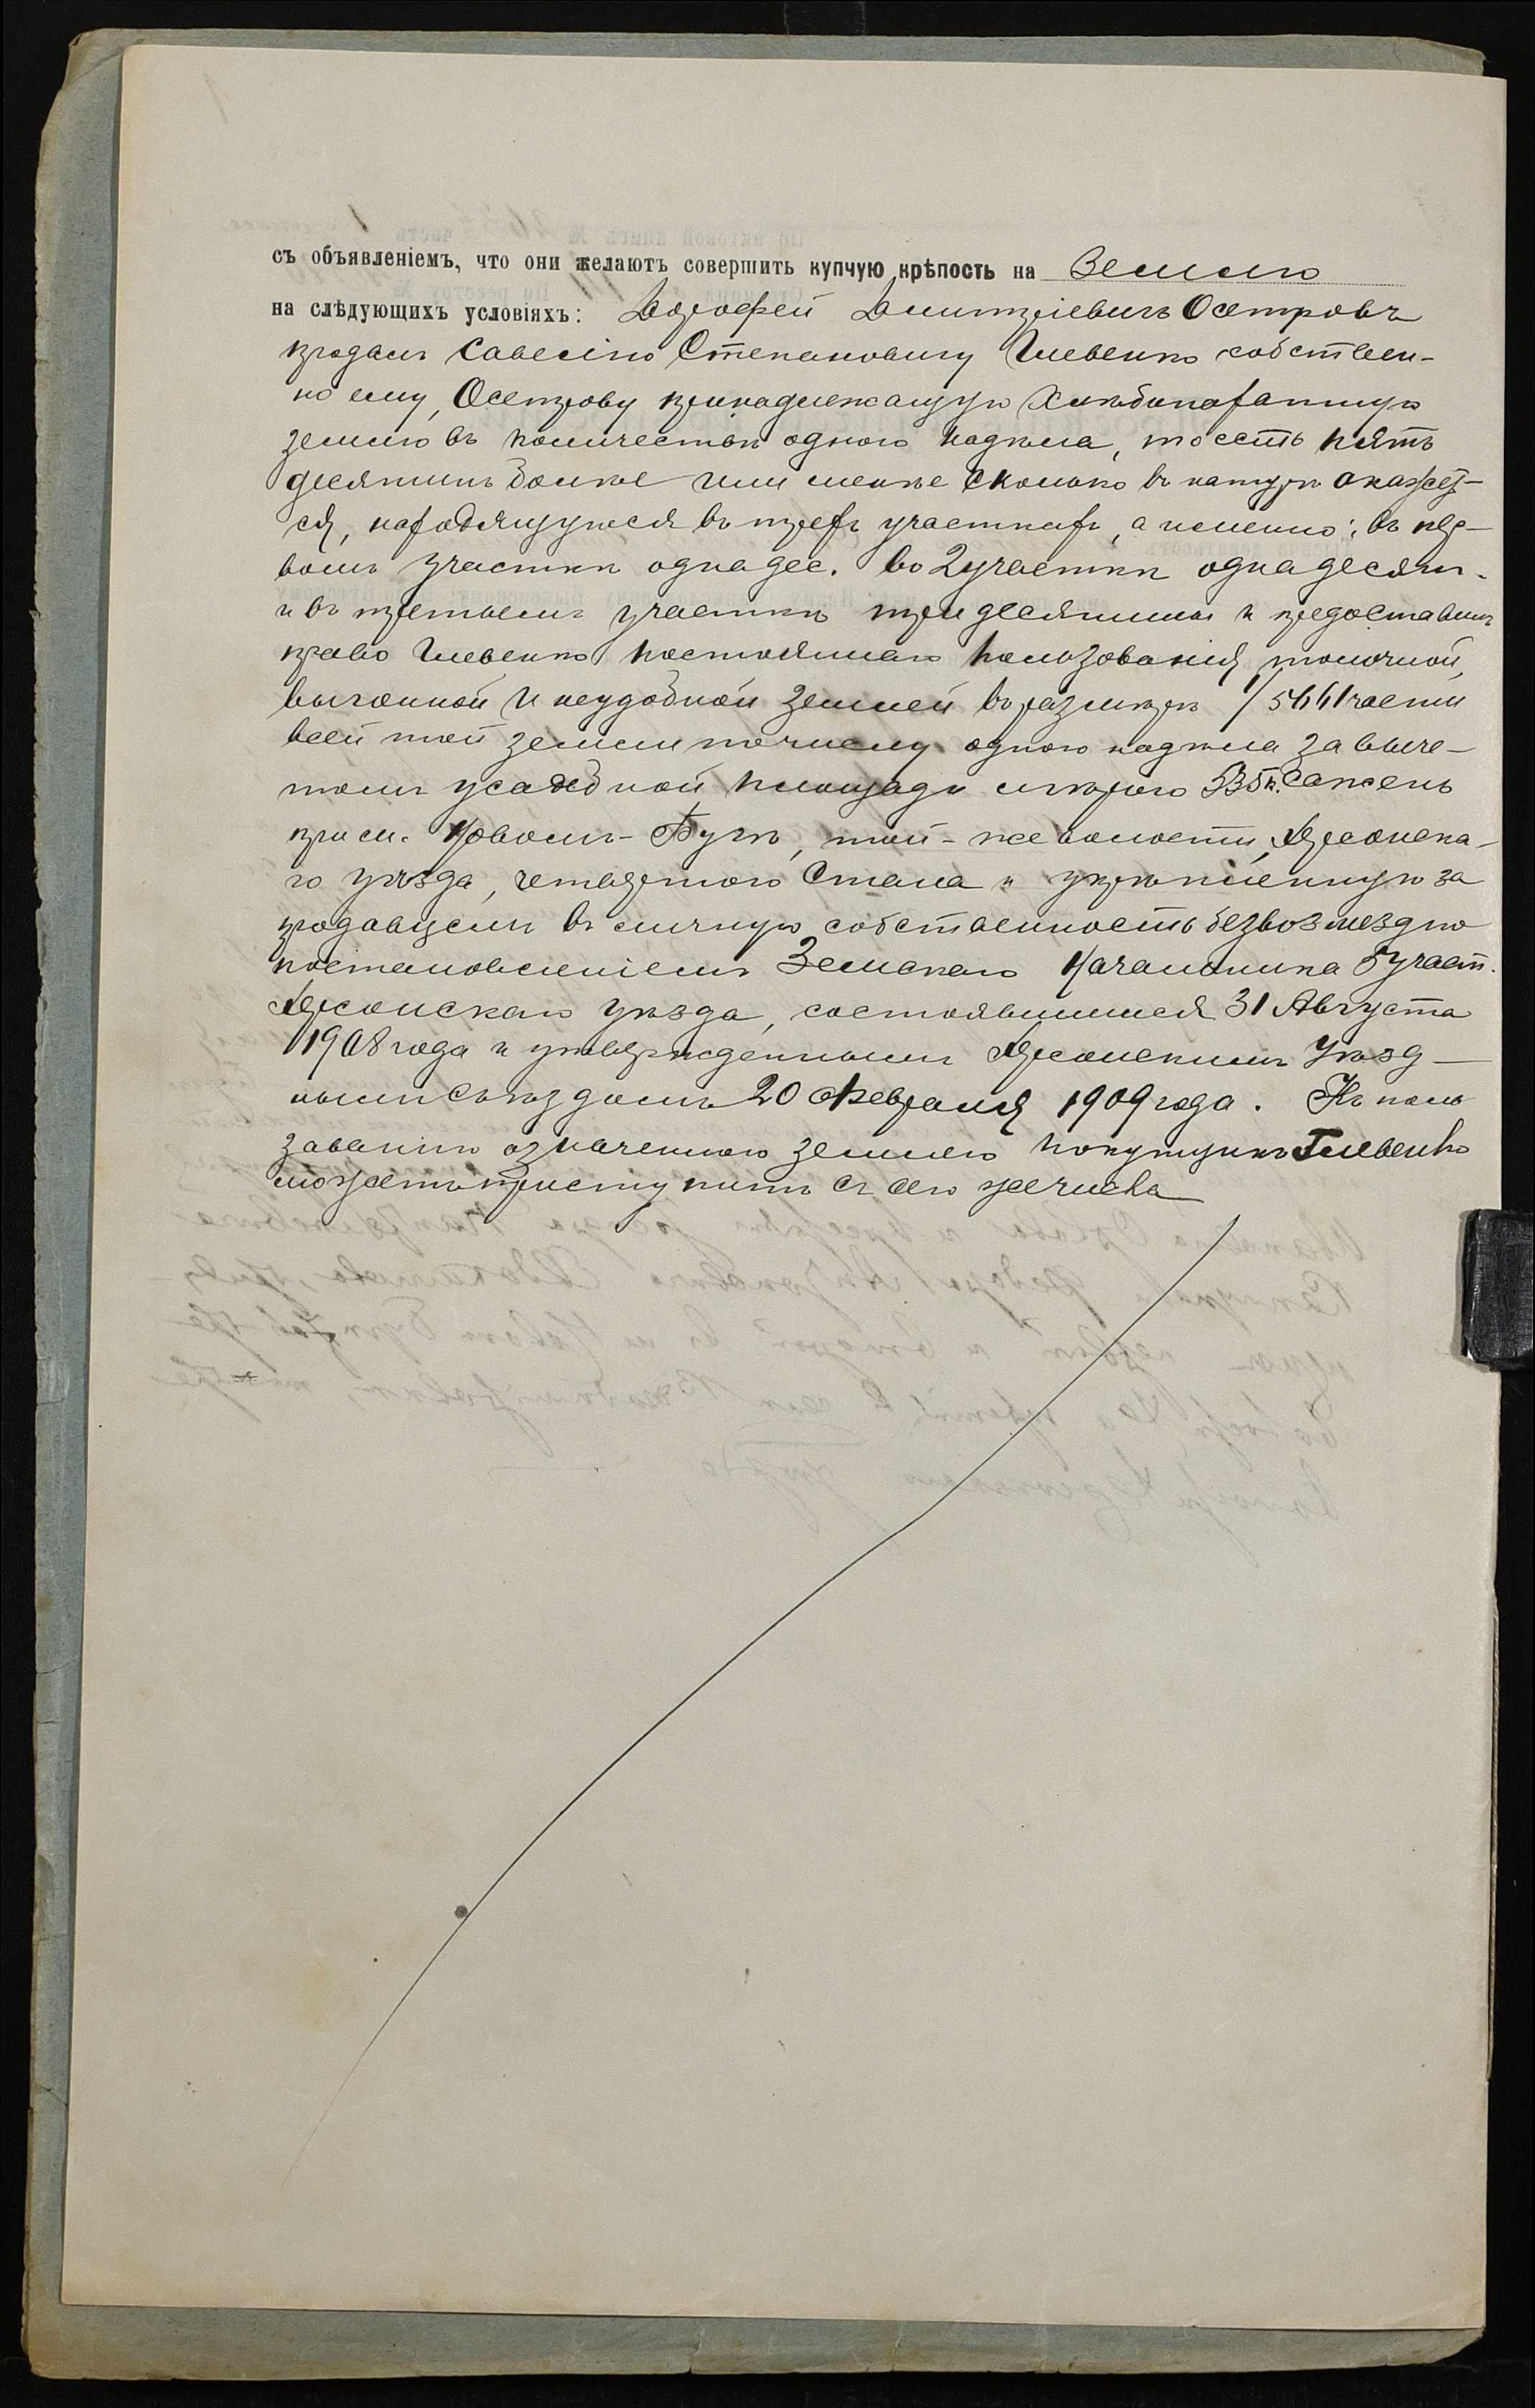 съ объявленіемъ, что они желаютъ совершить купчую крѣпость на Землю
на слѣдующихъ условіяхъ: Дорофей Дмитріевичъ Осетровъ
продалъ Савелію Степановичу Глевенко собствен-
но ему, Осетрову принадлежащую хлѣбопахатную
землю въ количествѣ одного надѣла, то есть пять
десятинъ болѣе или менѣе сколько въ натурѣ окажет-
ся, находящуюся въ трехъ участкахъ, а именно: въ пер-
вомъ участкѣ одна дес. во 2 участкѣ одна десят.
и въ третьемъ участкѣ три десятины и предоставилъ
право Глевенко постояннаго пользованія толочной,
выгонной и неудобной землей въ размѣрѣ 1/5661 части
всей той земли по числу одного надѣла за выче-
томъ усадебной площади мѣрою 335 к. сажень
при м. Новомъ-Бугѣ, той-же волости, Херсонска-
го уѣзда, четвертого Стана и укрѣпленную за
продавцемъ въ личную собственность безвозмездно
постановленіемъ Земскаго Начальника 5 участ.
Херсонскаго уѣзда, состоявшимся 31 Августа
1908 года и утвержденнымъ Херсонскимъ Уѣзд-
нымъ Съѣздомъ 20 Февраля 1909 года. Къ поль
зованію означенною землею покупщикъ Глевенко
можетъ приступить съ сего же числа